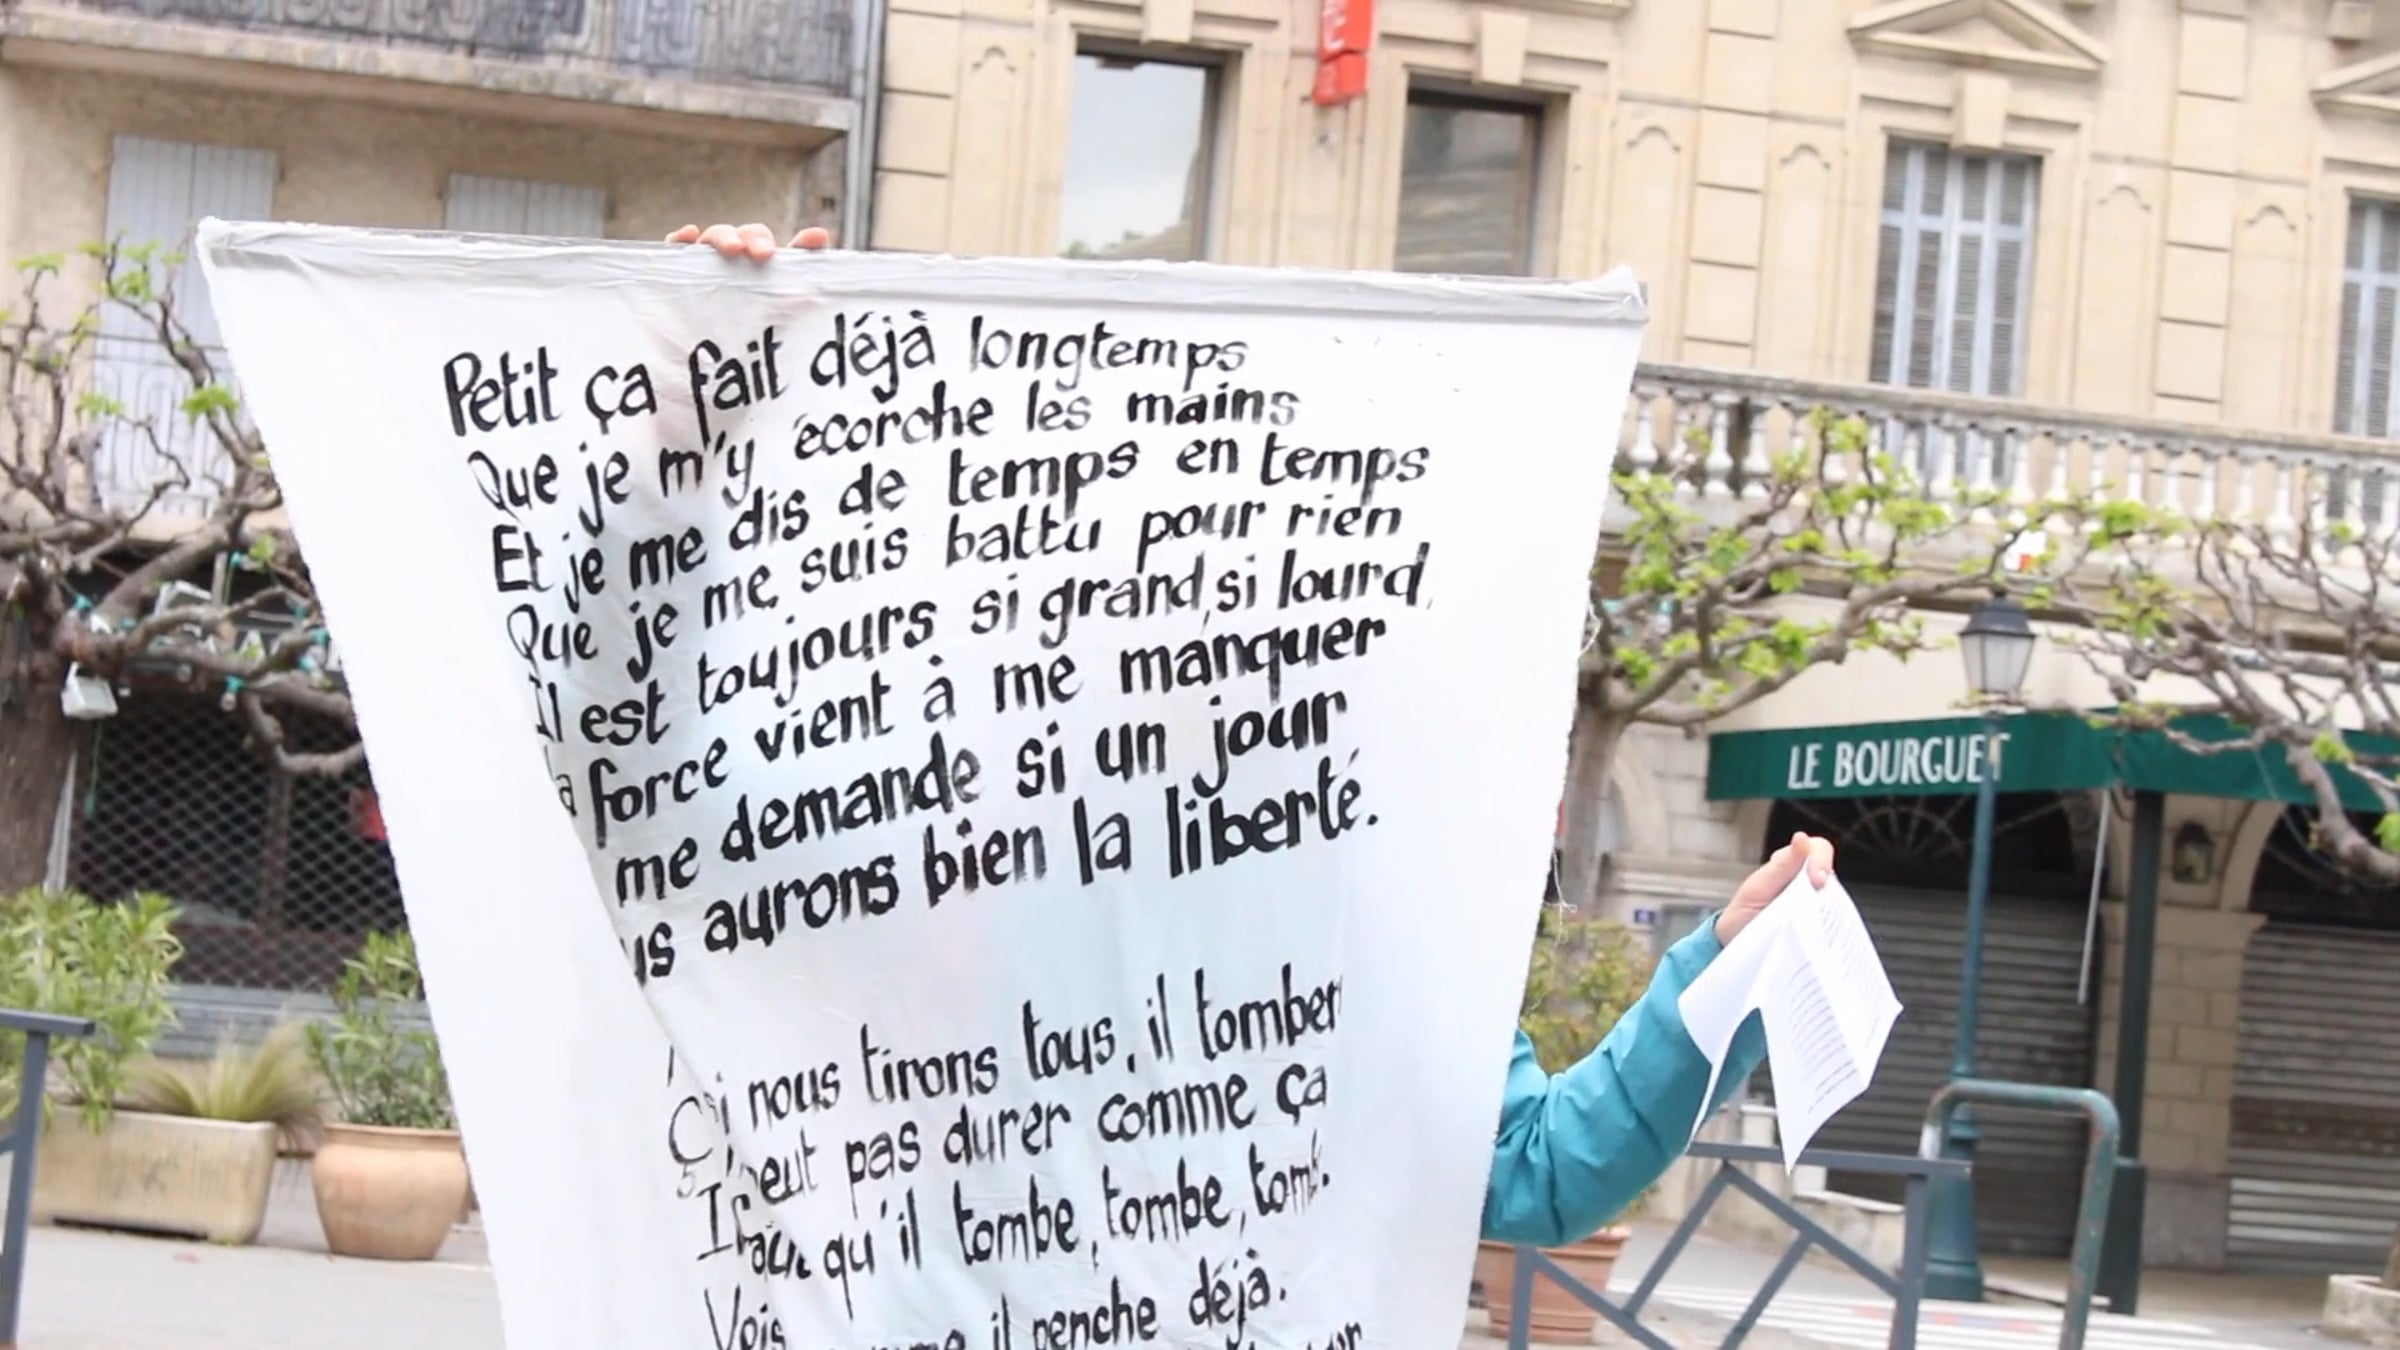 Petit ça fait déjà longtemps
Que je m'y écorche les mains
Et je me dis de temps en temps
Que je me suis battu pour rien
Il est toujours si grand, si lourd,
la force vient à me manquer
me demande si un jour
us aurons bien la liberté.
si nous tirons tous, il tomber
peut pas durer comme ça
qu'il tombe, tombe,
Vois
il penche déjà.
LE BOURGUET